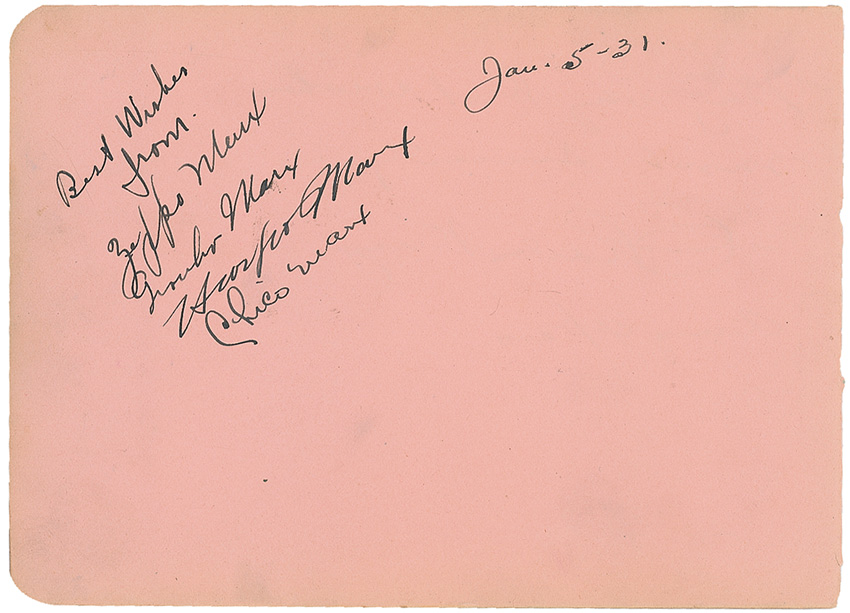 Jan. 5-31.
Best Wishes
from.
Zeppo Marx
Groucho Marx
Harpo Marx
Chico Marx